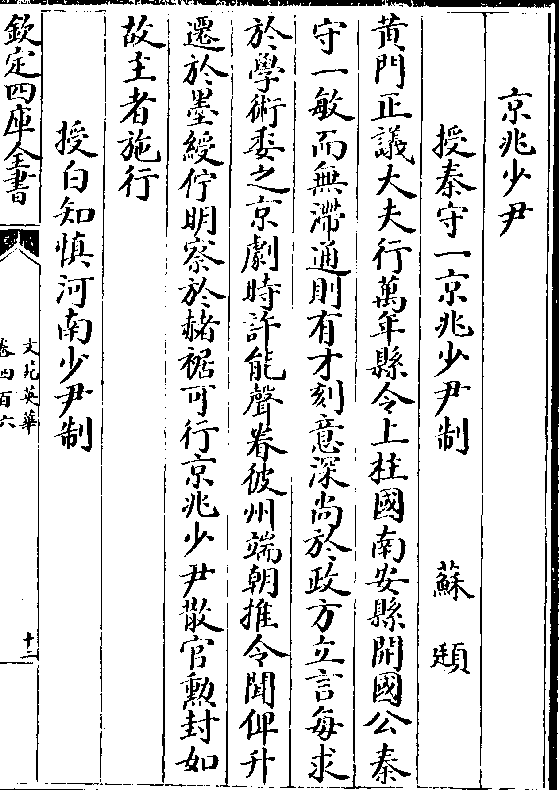 京兆少尹
授秦守一京兆少尹制　蘇頲
黄門正議大夫行萬年縣令上柱國南安縣開國公秦
守一敏而無滯通則有才刻意深尚於政方立言每求
於學術委之京劇時許能聲眷彼州端朝推令聞俾升
遷於墨綬佇明察於赭裾可行京兆少尹散官勲封如
故主者施行
授白知慎河南少尹制
欽定四庫全書
文苑英華
卷四百六
十二